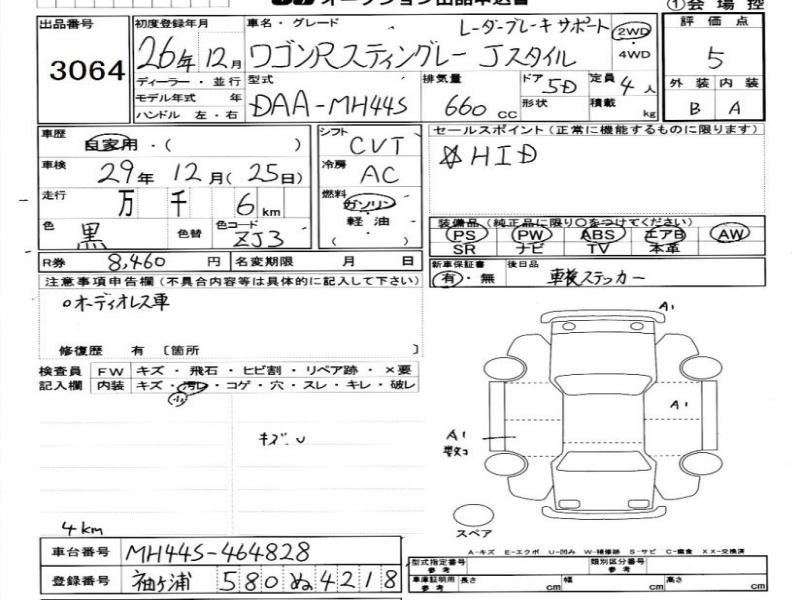 オークション出品申込書 ①会場控
出品番号 3064
初度登録年月 26年12月
ディーラー・並行
モデル年式 年
ハンドル 左・右
車名・グレード レーダーブレーキサポート
ワゴンRスティングレー Jスタイル
2WD
4WD
型式 DAA-MH44S
排気量 660 CC
ドア 5D
形状
定員 4人
積載 kg
評価点
5
外装 内装
B A
車歴 自家用・( )
車検 29年12月(25日)
走行 万 千 6 km
色 黒 色替 カラーコード ZJ3
シフト CVT
冷房 AC
燃料 ガソリン
軽・油
( )
セールスポイント(正常に機能するものに限ります)
☆HID
装備品(純正品に限り○をつけてください)
PS PW ABS エアB AW
SR ナビ TV 本革
R券 8,460円 名変期限 月 日
新車保証書 有・無
後日品 車検ステッカー
注意事項申告欄(不具合内容等は具体的に記入して下さい)
○オーディオレス車
修復歴 有 〔箇所 〕
検査員 FW キズ・飛石・ヒビ割・リペア跡・×要
記入欄 内装 キズ・汚レ・コゲ・穴・スレ・キレ・破レ
小
キズ.U
A1
A1
A1
数コ
スペア
4km
車台番号 MH44S-464828
登録番号 袖ヶ浦 580 ぬ 4218
A-キズ E-エクボ U-凹み W-補修跡 S-サビ C-腐食 XX-交換済
型式指定番号 参考 類別区分番号 参考
車庫証明用 参考 長さ cm 幅 cm 高さ cm